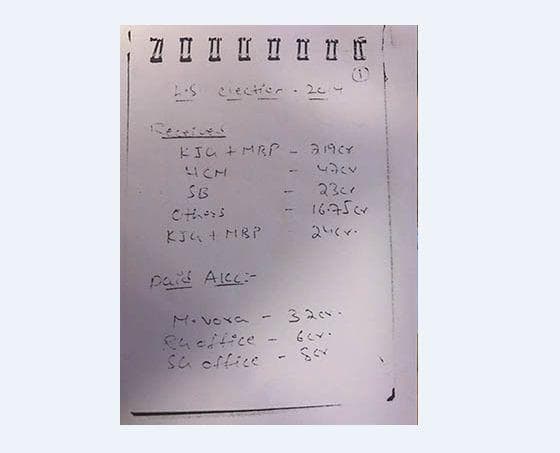 ①
L.S election - 2014
Received
KJG + MBP - 219cr
HCM - 47cr
SB - 23cr
Others - 16.75cr
KJG + MBP 24cr.
Paid AICC:-
M. vora - 32cr.
RG office - 6cr.
SG office - 8cr